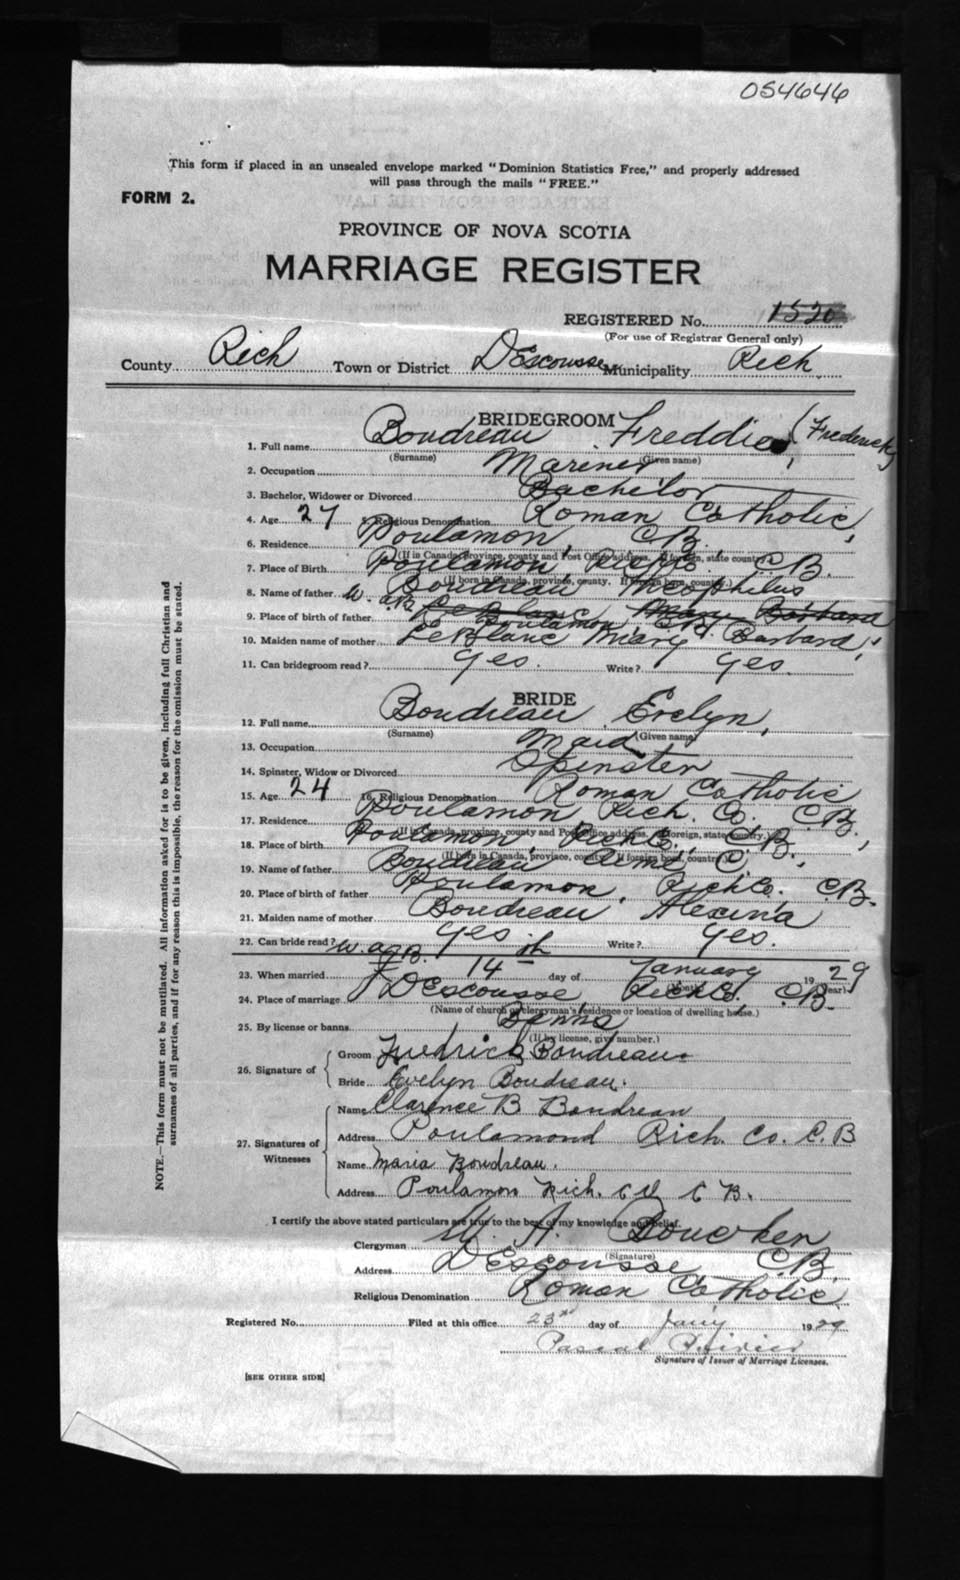 054646
This form if placed in an unsealed envelope marked "Dominion Statistics Free," and properly addressed
will pass through the mails "FREE."
FORM 2.
PROVINCE OF NOVA SCOTIA
MARRIAGE REGISTER
REGISTERED No. 1520
(For use of Registrar General only)
County Rich Town or District DEscousse Municipality Rich
BRIDEGROOM
1. Full name Boudreau Freddie (Frederick)
(Surname) (Given name)
2. Occupation Mariner
3. Bachelor, Widower or Divorced Bachelor
4. Age 27 5. Religious Denomination Roman Catholic
6. Residence Poulamon, C.B.
(If in Canada, province, county and Post Office address. If foreign, state country.)
7. Place of Birth Poulamon, Rich Co. C.B.
(If born in Canada, province, county. If foreign born, country.)
8. Name of father Boudreau Theophilus
W.A.B.
9. Place of birth of father LeBlanc Mary Barbara Poulamon, C.B.
10. Maiden name of mother LeBlanc Mary Barbara
11. Can bridegroom read? Yes. Write? Yes.
BRIDE
12. Full name Boudreau Evelyn,
(Surname) (Given name)
13. Occupation Maid
14. Spinster, Widow or Divorced Spinster
15. Age 24 16. Religious Denomination Roman Catholic
17. Residence Poulamon Rich. Co. C.B.,
(If in Canada, province, county and Post Office address. If foreign, state country.)
18. Place of birth Poulamon, Rich Co., C.B.,
(If born in Canada, province, county. If foreign born, country.)
19. Name of father Boudreau C.
20. Place of birth of father Poulamon, Rich Co. C.B.
21. Maiden name of mother Boudreau Alexina
22. Can bride read? Yes Write? Yes.
W.A.B.
23. When married 14th day of January 1929
(Month) (Year)
24. Place of marriage DEscousse, Rich Co., C.B.
(Name of church or clergyman's residence or location of dwelling house.)
25. By license or banns Banns
(If by license, give number.)
26. Signature of
Groom Fredrick Boudreau
Bride Evelyn Boudreau.
27. Signatures of Witnesses
Name Clarence B Boudreau
Address Poulamond Rich. Co. C.B
Name Maria Boudreau.
Address Poulamon Rich. C.B.
I certify the above stated particulars are true to the best of my knowledge and belief.
Clergyman W. A.
(Signature)
Address DEscousse C.B.
Religious Denomination Roman Catholic
Registered No. Filed at this office 23rd day of Jan'y 1929
Pascal Poirier
Signature of Issuer of Marriage Licenses.
[SEE OTHER SIDE]
NOTE.—This form must not be mutilated. All information asked for is to be given, including full Christian and
surnames of all parties, and if for any reason this is impossible, the reason for the omission must be stated.